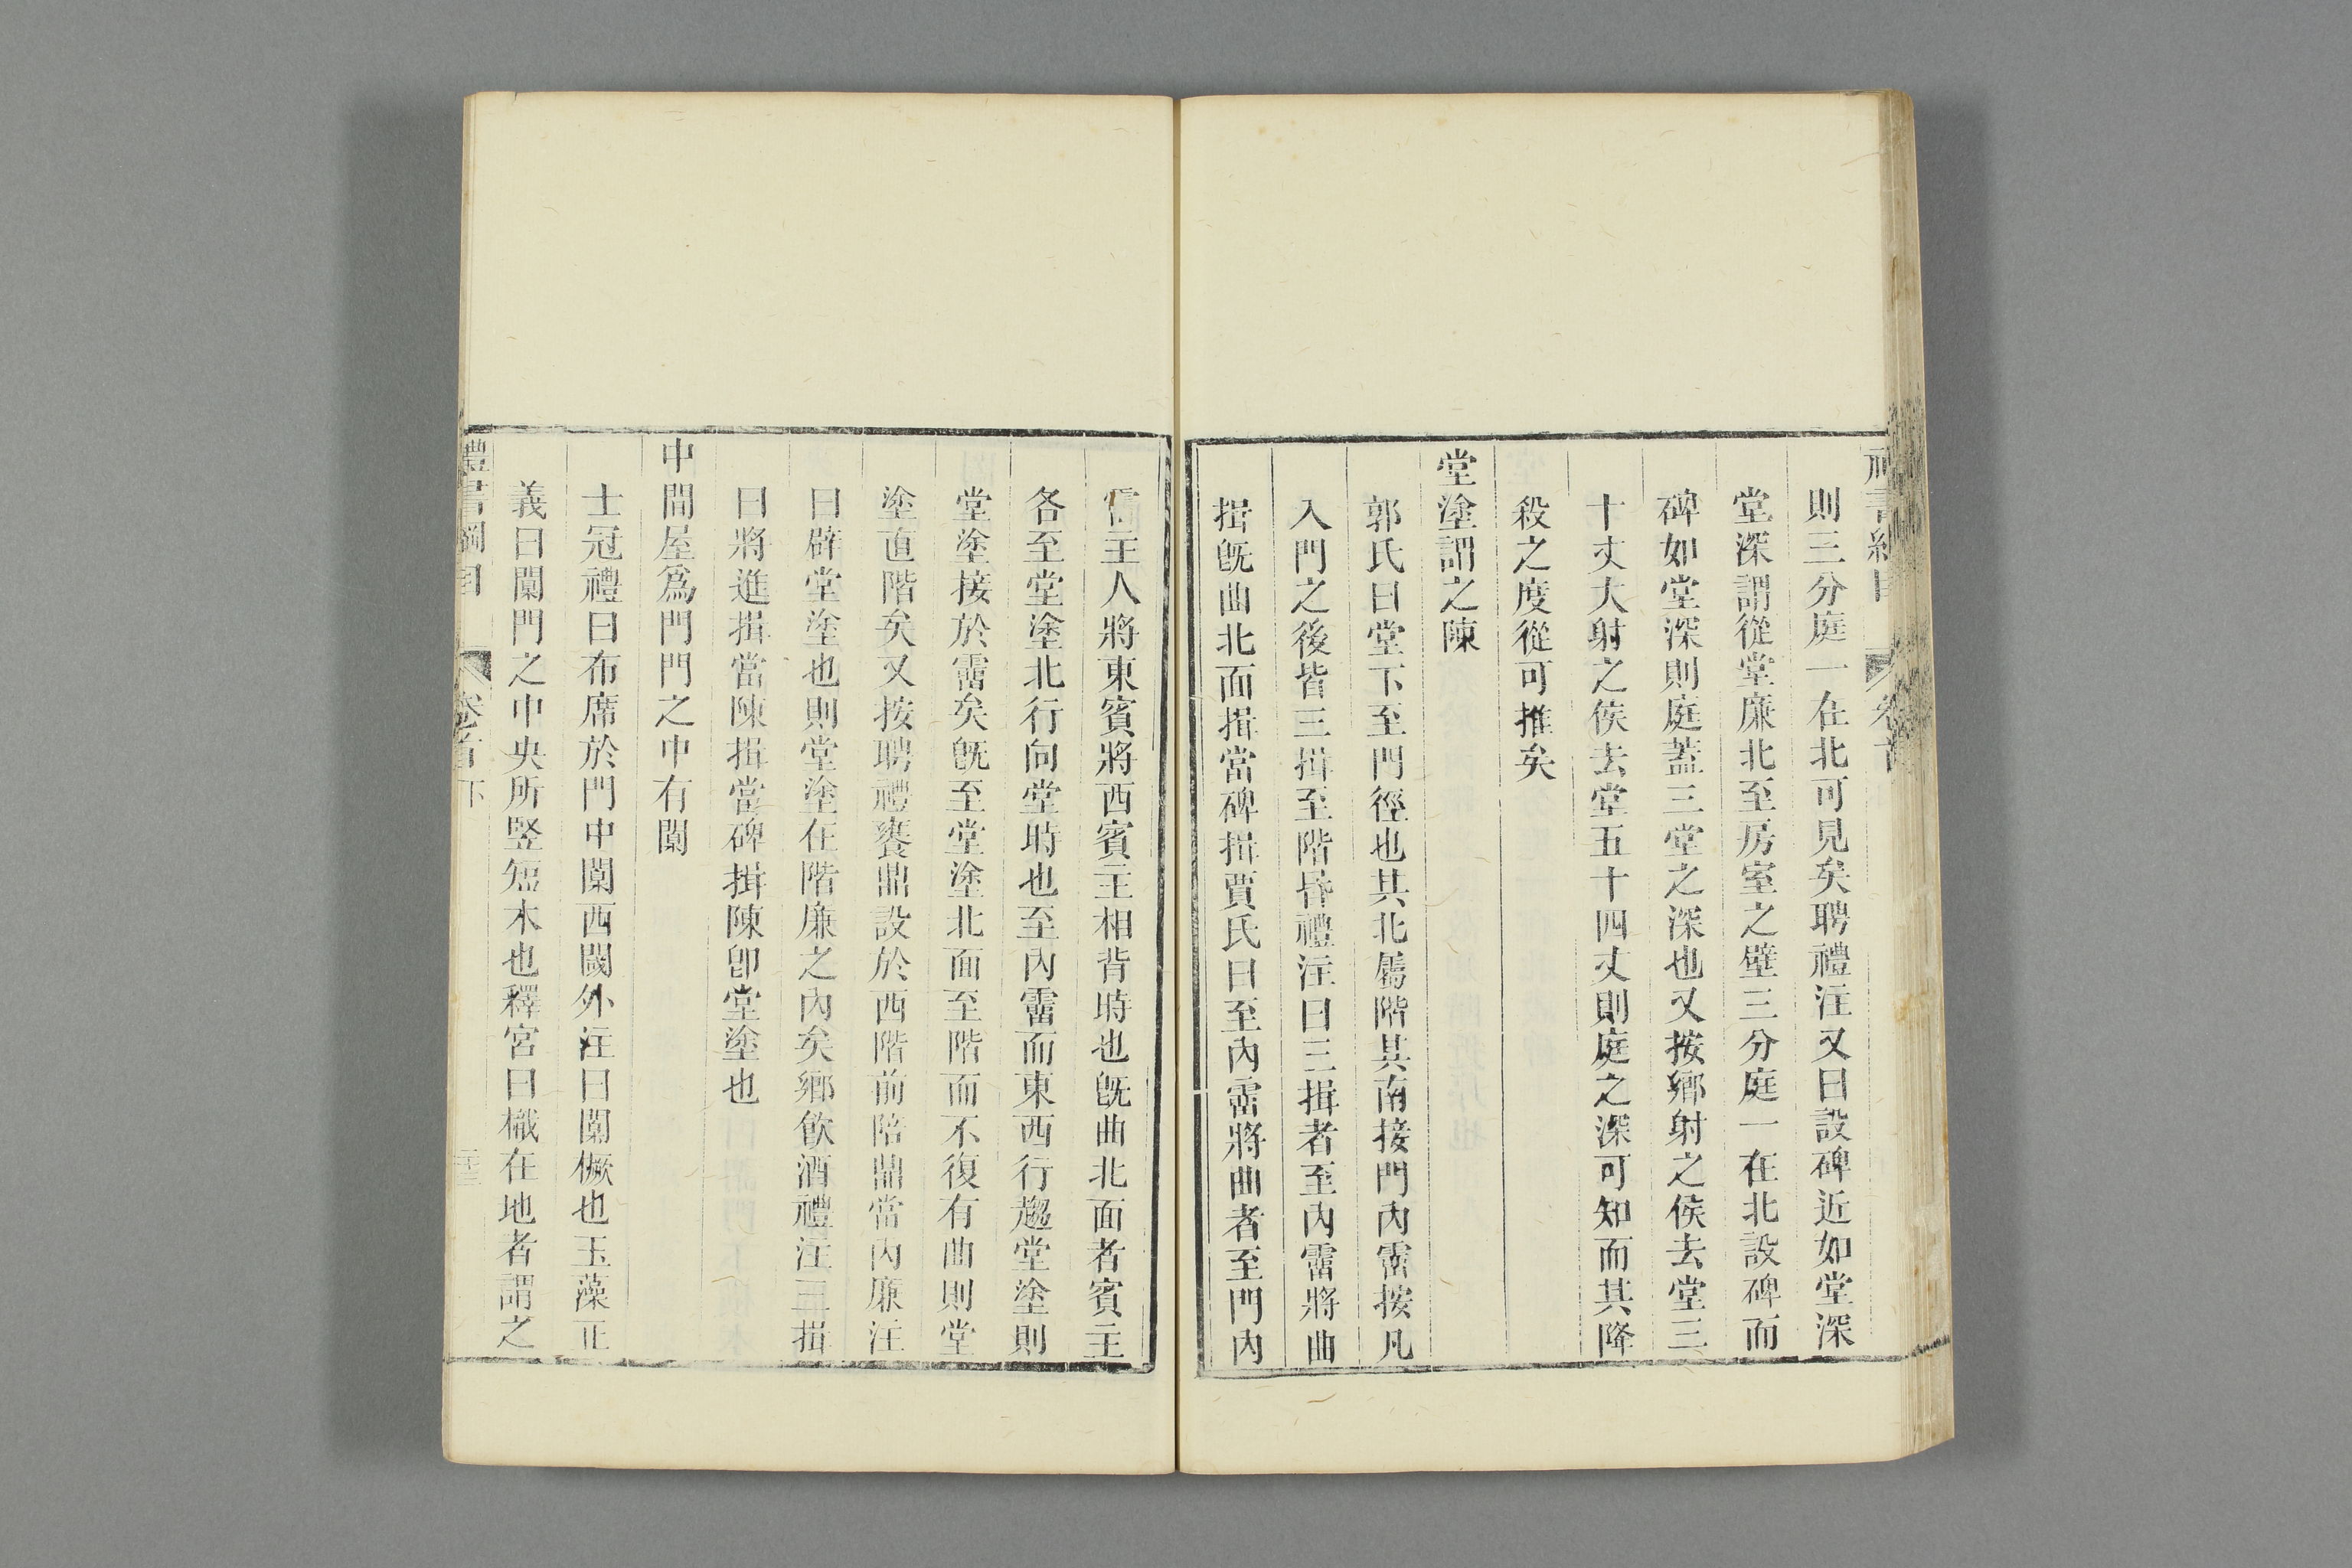 則三分庭一在北可見矣聘禮注又曰設碑近如堂深
堂深謂從堂廉北至房室之壁三分庭一在北設碑而
碑如堂深則庭蓋三堂之深也又按鄉射之侯去堂三
十丈大射之侯去堂五十四丈則庭之深可知而其降
殺之度從可推矣
堂塗謂之陳
郭氏曰堂下至門徑也其北屬階其南接門內霤按凡
入門之後皆三揖至階昏禮注曰三揖者至內霤將曲
揖旣曲北面揖當碑揖賈氏曰至內霤將曲者至門內
霤主人將東賓將西賓主相背時也旣曲北面者賓主
各至堂塗北行向堂時也至內霤而東西行趨堂塗則
堂塗接於霤矣旣至堂塗北面至階而不復有曲則堂
塗直階矣又按聘禮饔鼎設於西階前陪鼎當內廉注
曰辟堂塗也則堂塗在階廉之內矣鄉飮酒禮注三揖
曰將進揖當陳揖當碑揖陳卽堂塗也
中間屋爲門門之中有闑
士冠禮曰布席於門中闑西閾外注曰闑橛也玉藻正
義曰闑門之中央所竪短木也釋宮曰樴在地者謂之
禮書綱目 卷首下